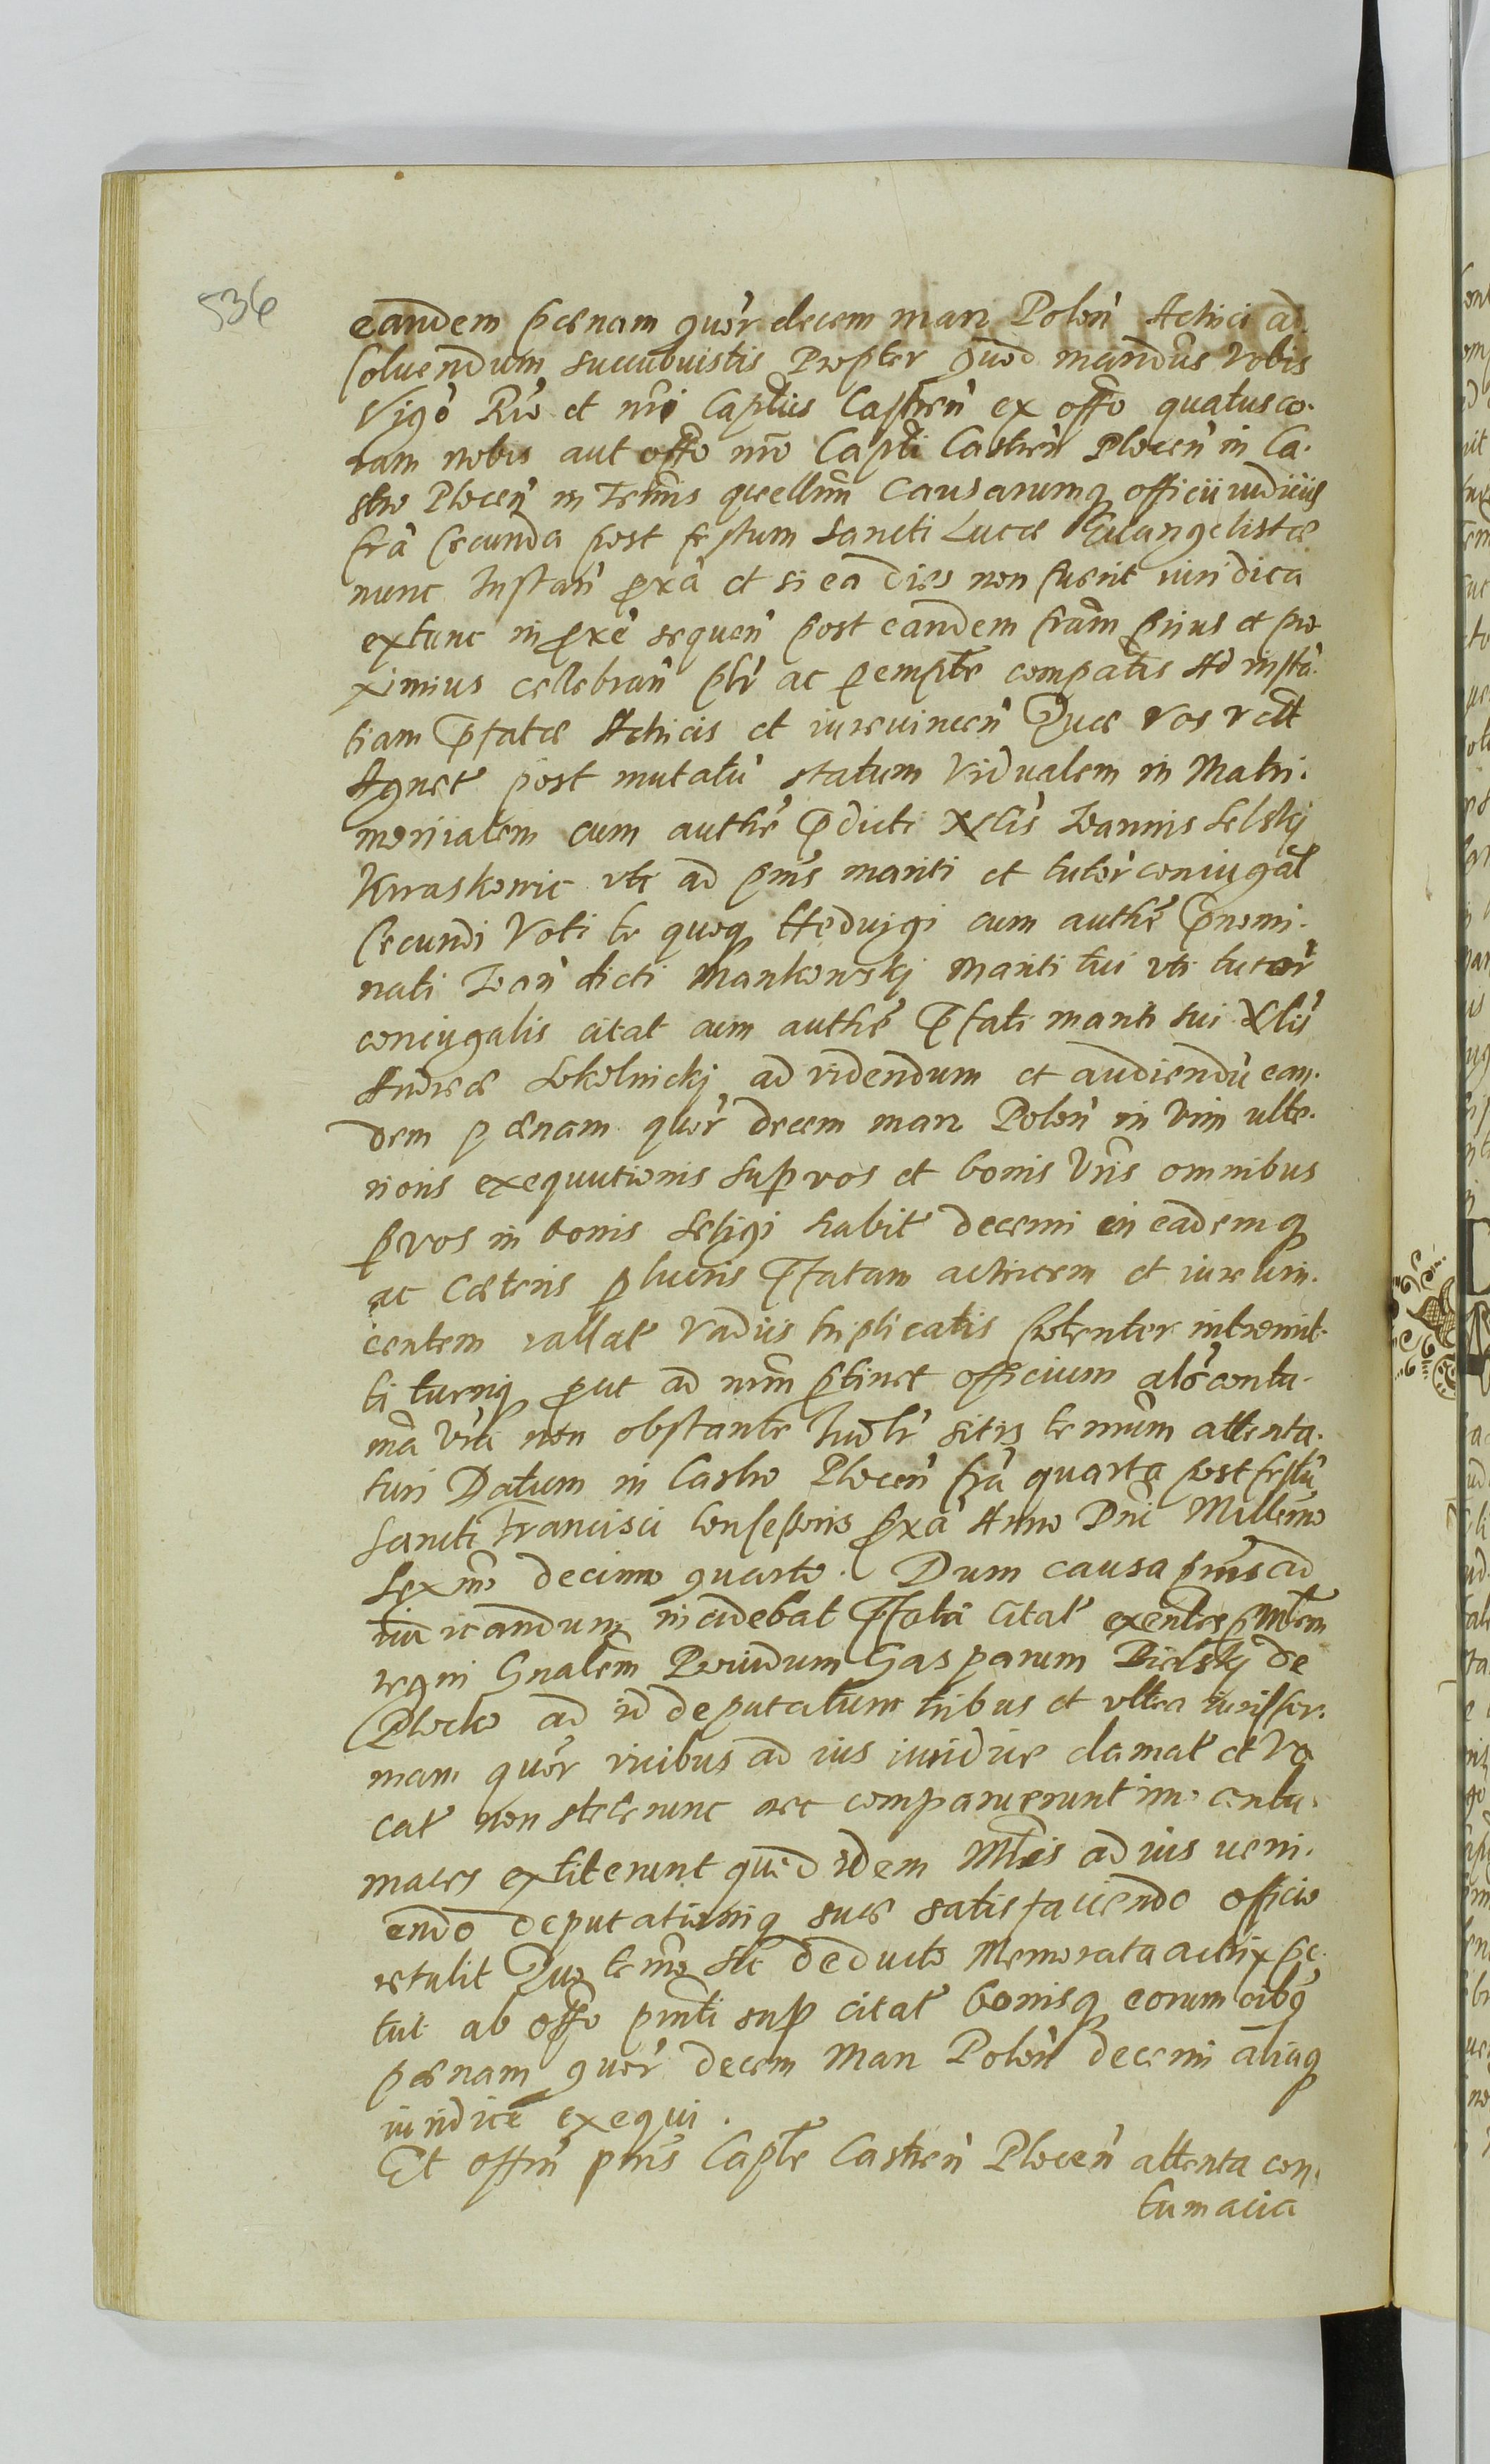 536
eandem pœnam quor decem marc Polon Actrici ad
soluendum succubuistis Propter quod mandus Vobis
Vigo Rio et nri Captus Castren ex offo quatus co.
ram nobis aut offo nro Capti Castren Plocen in Ca.
stro Plocen in Termis quællrm Causarumq officii iudiciis
fra secunda post festum Sancti Lucæ Euangelistæ
nunc Instan pxa et si ea dies non fuerit iuridica
extunc in pxe sequen post eandem fram prius et pro
ximius cellebran psr ac pempte compatis Ad instã
tiam pfatæ Actricis et iurevincen Quæ vos vclt
Agnet post mutatu statum Vidualem in Matri.
monialem cum authe pdicti Nlis Ioannis Selskj
Kuraskowic uti ad pns mariti et tutor coniugal
secundi Voti te quoq Heduigi cum authe pnomi.
nati Ioan dicti Mankowskj Mariti tui vti tutor
coniugalis citat cum authe pfati mariti sui Nlis
Andreæ Sokolnickj ad videndum et audiendu ean.
dem pœnam quor decem marc Polon in vim vlte.
rioris exequutionis sup vos et bonis Vris omnibus
p vos in bonis Seligi habit decerni in eademq
ac Cæteris p lucris pfatam actricem et iurevin.
centem vallat vadiis triplicatis potenter intromit.
ti turmq put ad nrm ptinet officium alo contu.
ma Vra non obstante Iudlr sitis termum attenta.
turi Datum in Castro Plocen fra quarta post festu
Sancti Francisci Confessoris pxa Anno Dni Millemo
Sexmo decimo quarto. Dum causa pns ad
iudicandum incidebat pfati Citat exentes p Mlem
regni Gnalem Prouidum Gasparum Bielskj de
Plocko ad id deputatum tribus et vltra iuris for.
mam quor vicibus ad ius iuridice clamat et Vo
cat non steterunt nec comparuerunt imo contu.
maces extiterunt quod idem Mlis ad ius veni.
endo deputationiq suæ satisfaciendo officio
retulit Quo termo sic deducto Memorata actrix pe.
tiit ab offo pnti sup citat bonisq eorum oibq
pœnam quor decem Marc Polon decerni aliaq
iuridice exequi.
Et offm pns Capte Castren Plocen attenta con.
tumacia